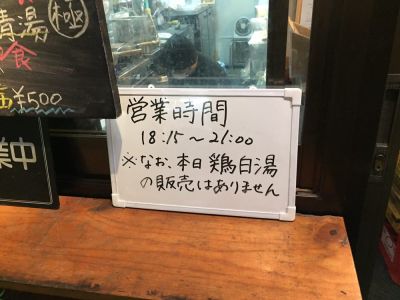 清湯
極
食
¥500
業中
営業時間
18:15〜21:00
※なお、本日鶏白湯
の販売はありません